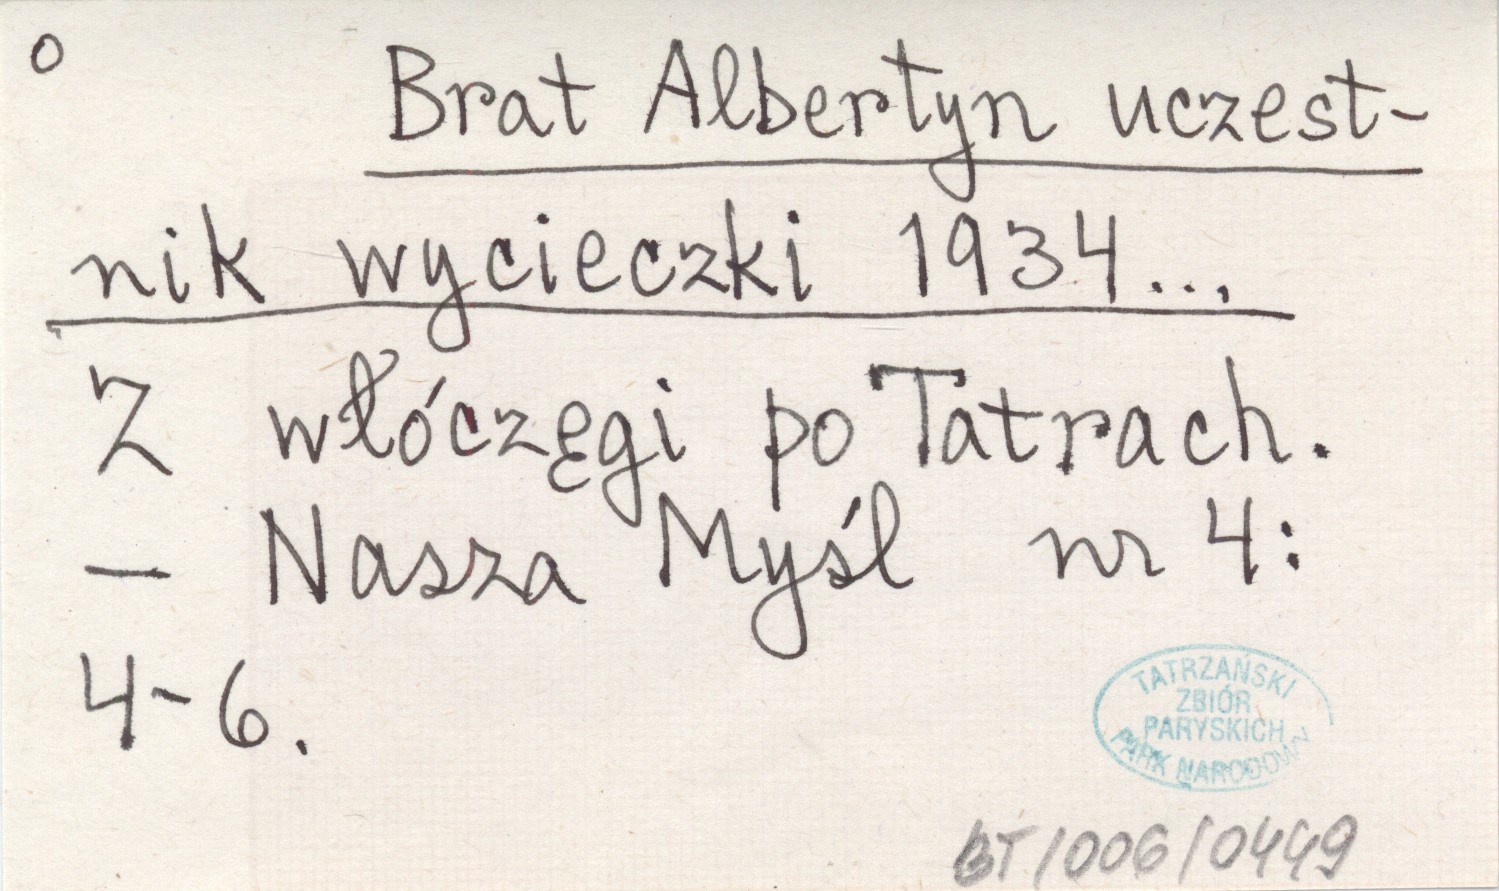 o
Brat Albertyn uczest-
nik wycieczki 1934...
Z włóczęgi po Tatrach.
— Nasza Myśl nr 4:
4-6.
TATRZAŃSKI
ZBIÓR
PARYSKICH
PARK NARODOWY
BT/006/0449